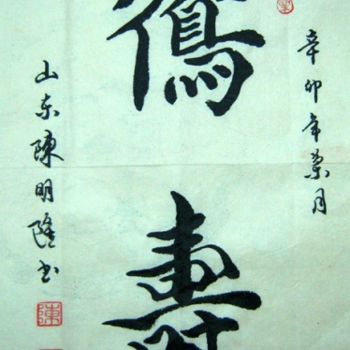 辛卯年月
鶴壽
山东陳明隆书